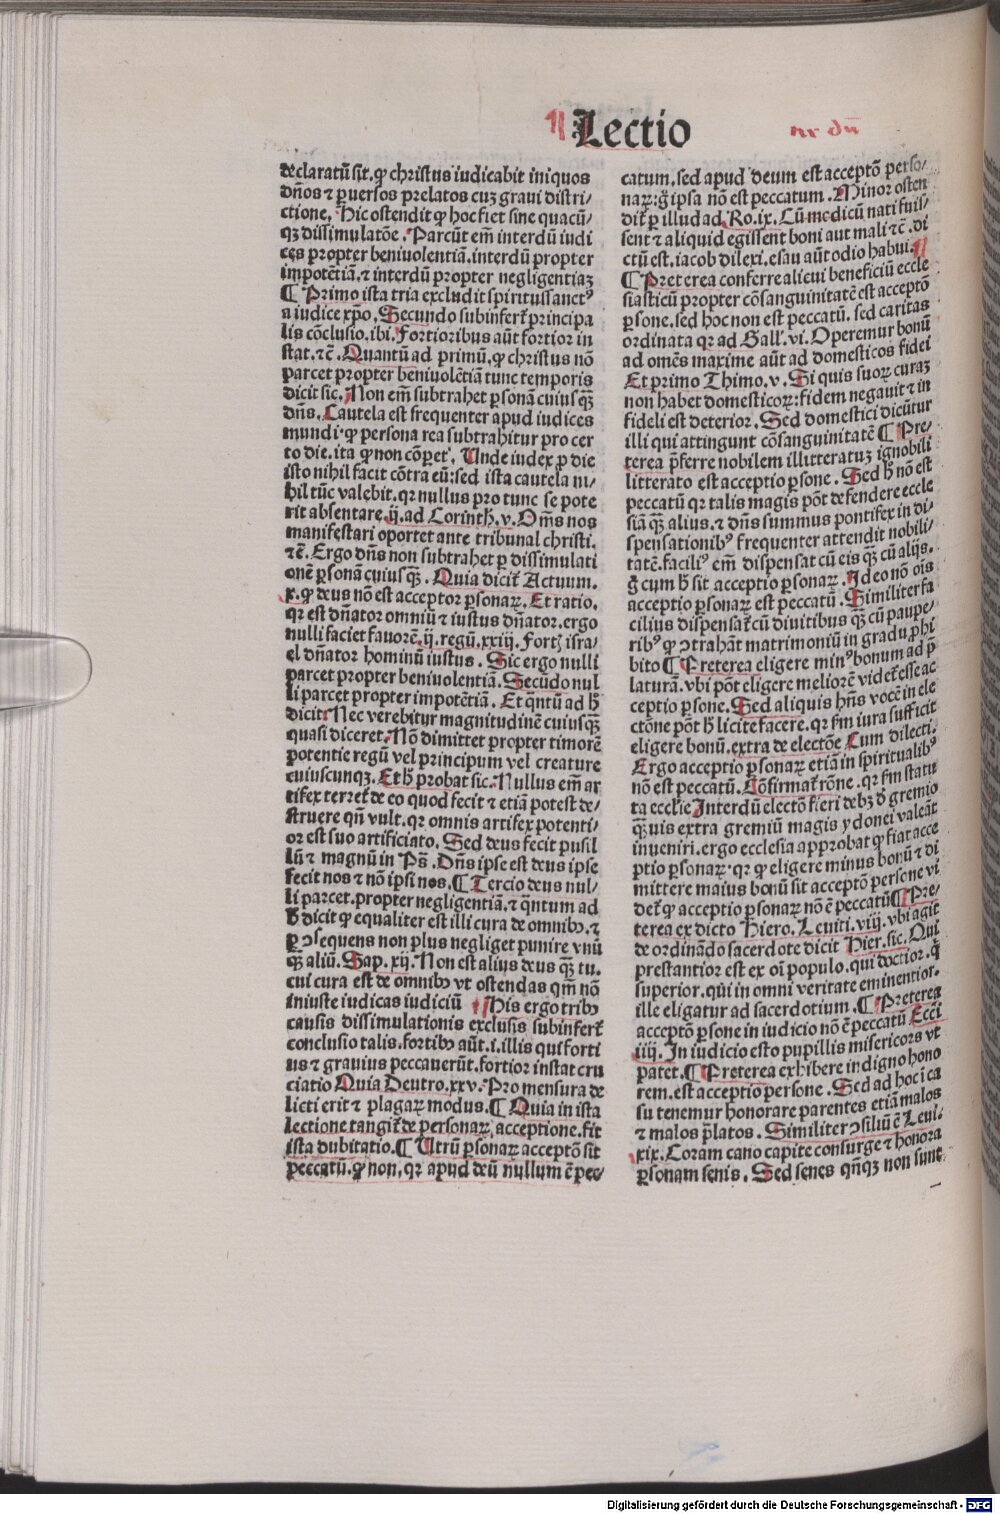 ¶ Lectio
declaratū sit. ꝙ christus iudicabit iniquos
dn̄os ⁊ ꝑuersos prelatos cuꝫ graui distri/
ctione. Hic ostendit ꝙ hoc fiet sine quacū/
qꝫ dissimulatōe. Parcūt em̄ interdū iudi
ces propter beniuolentiā. interdū propter
impotētiā. ⁊ interdū propter negligentiaꝫ
¶ Primo ista tria excludit spiritussanctꝰ
a iudice xp̄o. Secundo subinfert̄ principa
lis cōclusio. ibi. Fortioribus aūt fortior in
stat. ⁊c̄. Quantū ad primū. ꝙ christus nō
parcet propter beniuolētiā tunc temporis
dicit sic. Non em̄ subtrahet ꝑsonā cuiusqꝫ
dn̄s. Cautela est frequenter apud iudices
mundi ꝙ persona rea subtrahitur pro cer
to die. ita ꝙ non cōꝑet. Unde iudex ꝑ die
isto nihil facit cōtra eū: sed ista cautela ni/
hil tūc valebit. qꝛ nullus pro tunc se pote
rit absentare. ij. ad Corinth. v. Om̄s nos
manifestari oportet ante tribunal christi.
⁊c̄. Ergo dn̄s non subtrahet ꝑ dissimulati
onē ꝑsonā cuiusqꝫ. Quia dicit̄ Actuum.
x. ꝙ deus nō est acceptor ꝑsonaꝝ. Et ratio.
qꝛ est dn̄ator omniū ⁊ iustus dn̄ator. ergo
nulli faciet fauorē. ij. regū. xxiij. Fortꝭ isra/
el dn̄ator hominū iustus. Sic ergo nulli
parcet propter beniuolentiā. Secūdo nul
li parcet propter impotētiā. Et q̄ntū ad h̄
dicit. Nec verebitur magnitudinē cuiusqꝫ
quasi diceret. Nō dimittet propter timorē
potentie regū vel principum vel creature
cuiuscunqꝫ. Et h̄ probat sic. Nullus em̄ ar
tifex terret̄ de eo quod fecit ⁊ etiā potest de/
struere qn̄ vult. qꝛ omnis artifex potenti/
or est suo artificiato. Sed deus fecit pusil
lū ⁊ magnū in Ps̄. Dn̄s ipse est deus ipse
fecit nos ⁊ nō ipsi nos. ¶ Tercio deus nul/
li parcet. propter negligentiā. ⁊ q̄ntum ad
h̄ dicit ꝙ equaliter est illi cura de omnibꝫ. ⁊
ꝑ ↄsequens non plus negliget punire vnū
qꝫ aliū. Sap. xij. Non est alius deus qꝫ tu.
cui cura est de omnibꝫ vt ostendas qm̄ nō
iniuste iudicas iudiciū ¶ His ergo tribꝫ
causis dissimulationis exclusis subinfert̄
conclusio talis. fortibꝫ aūt. i. illis qui forti
us ⁊ grauius peccauerūt. fortior instat cru
ciatio Quia Deutro. xxv. Pro mensura de
licti erit ⁊ plagaꝝ modus. ¶ Quia in ista
lectione tangit̄ de personaꝝ acceptione. fit
ista dubitatio. ¶ Utrū ꝑsonaꝝ acceptō sit
peccatū. ꝙ non. qꝛ apud deū nullum ē pec/
catum. sed apud deum est acceptō perso/
naꝝ: g̊ ipsa nō est peccatum. Minor osten
dit̄ ꝑ illud ad Ro. ix. Cū medicū nati fuis/
sent ⁊ aliquid egissent boni aut mali ⁊c̄. di
ctū est. iacob dilexi. esau aūt odio habui.
¶ Preterea conferre alicui beneficiū eccle
siasticū propter cōsanguinitatē est acceptō
ꝑsone. sed hoc non est peccatū. sed caritas
ordinata qꝛ ad Gall̄. vi. Operemur bonū
ad omēs maxime aūt ad domesticos fidei
Et primo Thimo. v. Si quis suoꝝ curaꝫ
non habet domesticoꝝ: fidem negauit ⁊ in
fideli est deterior. Sed domestici dicūtur
illi qui attingunt cōsanguinitatē ¶ Pre/
terea p̄ferre nobilem illitteratuꝫ ignobili
litterato est acceptio ꝑsone. Sed h̄ nō est
peccatū qꝛ talis magis pōt defendere eccle
siā qꝫ alius. ⁊ dn̄s summus pontifex in di/
spensationibꝰ frequenter attendit nobili/
tatē. faciliꝰ em̄ dispensat cū eis qꝫ cū alijs.
g̊ cum h̄ sit acceptio ꝑsonaꝝ. Ideo nō oīs
acceptio ꝑsonaꝝ est peccatū. Similiter fa
cilius dispensat̄ cū diuitibus qꝫ cū paupe/
ribꝰ ꝙ ↄtrahāt matrimoniū in gradu ꝓhi
bito ¶ Preterea eligere minꝰ bonum ad p̄
laturā. vbi pōt eligere meliorē videt̄ esse ac
ceptio ꝑsone. Sed aliquis hn̄s vocē in ele
ctōne pōt h̄ licite facere. qꝛ fm̄ iura sufficit
eligere bonū. extra de electōe Cum dilecti.
Ergo acceptio ꝑsonaꝝ etiā in spiritualibꝰ
nō est peccatū. Cōfirmat̄ rōne. qꝛ fm̄ statu
ta ecclie Interdū electō fieri debꝫ d̄ gremio
qꝫuis extra gremiū magis ydonei valeāt
inueniri. ergo ecclesia approbat ꝙ fiat acce
ptio ꝑsonaꝝ. qꝛ ꝙ eligere minus bonū ⁊ di
mittere maius bonū sit acceptō persone vi
det̄ ꝙ acceptio ꝑsonaꝝ nō ē peccatū ¶ Pre/
terea ex dicto Hiero. Leuiti. viij. vbi agit̄
de ordinādo sacerdote dicit Hier. sic. Qui
prestantior est ex oī populo. qui doctior. q̇
superior. qūi in omni veritate eminentior.
ille eligatur ad sacerdotium. ¶ Preterea
acceptō ꝑsone in iudicio nō ē peccatū Ecc̄i
iiij. In iudicio esto pupillis misericors vt
patet. ¶ Preterea exhibere indigno hono
rem. est acceptio persone. Sed ad hoc ī ca
su tenemur honorare parentes etiā malos
⁊ malos p̄latos. Similiter ↄsiliū ē Leui.
xix. Coram cano capite consurge ⁊ honora
ꝑsonam senis. Sed senes qn̄qꝫ non sunt
Digitalisierung gefördert durch die Deutsche Forschungsgemeinschaft - DFG